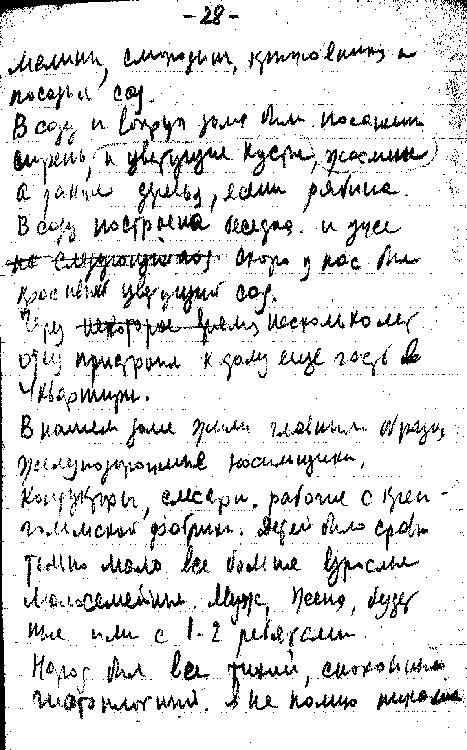 - 28 -
малины, смородины, крыжовника и
посадил сад.
В саду и вокруг дома были посажены
сирень, и цветущие кусты, жасмины
а также деревья, ясени рябина.
В саду построена беседка. и уже
на следующий год скоро у нас был
красивый цветущий сад.
Через некоторое время, несколько лет
отец пристроил к дому еще часть в
4 квартиры.
В нашем доме жили главным образом,
железнодорожные носильщики,
кондуктора, слесари. рабочие с Крен-
гольмской фабрики. Детей было срав
тельно мало все больше взрослые
малосемейные. Муж, жена, будет
или с 1-2 ребятами
Народ был все тихий, спокойный
я не помню никаких